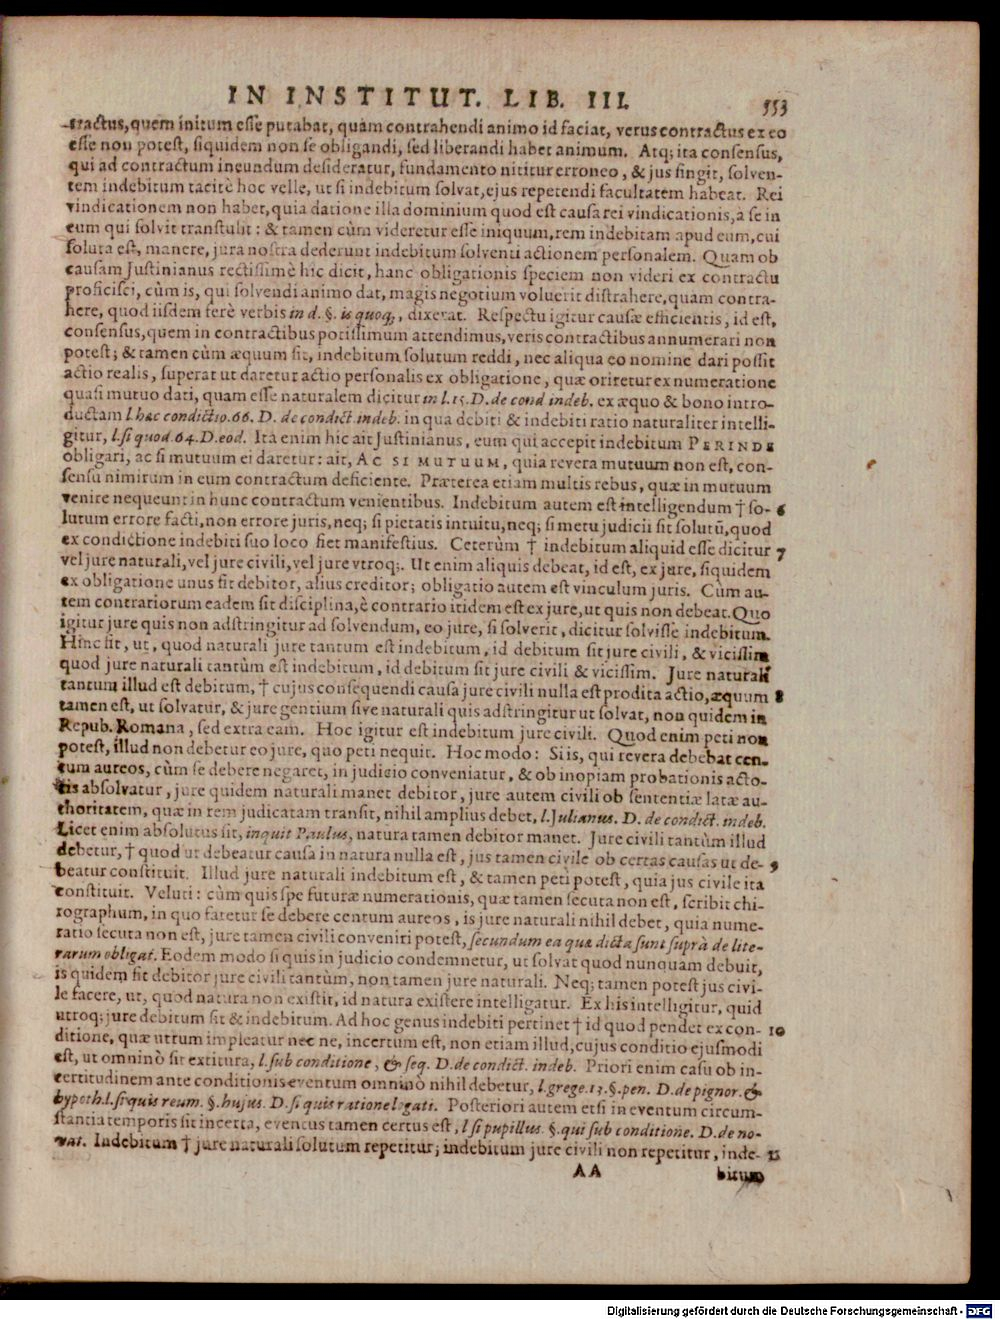 IN INSTITUT. LIB. III. 553
tractus, quem initum esse putabat, quàm contrahendi animo id faciat, verus contractus ex eo
esse non potest, siquidem non se obligandi, sed liberandi habet animum. Atq; ita consensus,
qui ad contractum ineundum desideratur, fundamento nititur erroneo, & jus fingit, solven-
tem indebitum tacitè hoc velle, ut si indebitum solvat, ejus repetendi facultatem habeat. Rei
vindicationem non habet, quia datione illa dominium quod est causa rei vindicationis, à se in
eum qui solvit transtulit: & tamen cùm videretur esse iniquum, rem indebitam apud eum, cui
soluta est, manere, jura nostra dederunt indebitum solventi actionem personalem. Quam ob
causam Justinianus rectissimè hic dicit, hanc obligationis speciem non videri ex contractu
proficisci, cùm is, qui solvendi animo dat, magis negotium voluerit distrahere, quam contra-
here, quod iisdem ferè verbis in d. §. is quoq;, dixerat. Respectu igitur causæ efficientis, id est,
consensus, quem in contractibus potissimum attendimus, veris contractibus annumerari non
potest; & tamen cùm æquum sit, indebitum solutum reddi, nec aliqua eo nomine dari possit
actio realis, superat ut daretur actio personalis ex obligatione, quæ oriretur ex numeratione
quasi mutuo dati, quam esse naturalem dicitur in l. 15. D. de cond indeb. ex æquo & bono intro-
ductam l. hæc condictio. 66. D. de condict. indeb. in qua debiti & indebiti ratio naturaliter intelli-
gitur, l. si quod. 64. D. eod. Ita enim hic ait Justinianus, eum qui accepit indebitum PERINDE
obligari, ac si mutuum ei daretur: ait, AC SI MUTUUM, quia revera mutuum non est, con-
sensu nimirum in eum contractum deficiente. Præterea etiam multis rebus, quæ in mutuum
venire nequeunt in hunc contractum venientibus. Indebitum autem est intelligendum † so- 6
lutum errore facti, non errore juris, neq; si pietatis intuitu, neq; si metu judicii sit solutū, quod
ex condictione indebiti suo loco fiet manifestius. Ceterùm † indebitum aliquid esse dicitur 7
vel jure naturali, vel jure civili, vel jure vtroq;. Ut enim aliquis debeat, id est, ex jure, siquidem
ex obligatione unus fit debitor, alius creditor; obligatio autem est vinculum juris. Cùm au-
tem contrariorum eadem sit disciplina, è contrario itidem est ex jure, ut quis non debeat. Quo
igitur jure quis non adstringitur ad solvendum, eo jure, si solverit, dicitur solvisse indebitum.
Hinc fit, ut, quod naturali jure tantum est indebitum, id debitum sit jure civili, & vicissim
quod jure naturali tantùm est indebitum, id debitum sit jure civili & vicissim. Jure naturali
tantum illud est debitum, † cujus consequendi causa jure civili nulla est prodita actio, æquum 8
tamen est, ut solvatur, & jure gentium sive naturali quis adstringitur ut solvat, non quidem in
Repub. Romana, sed extra eam. Hoc igitur est indebitum jure civili. Quod enim peti non
potest, illud non debetur eo jure, quo peti nequit. Hoc modo: Si is, qui revera debebat cen-
tum aureos, cùm se debere negaret, in judicio conveniatur, & ob inopiam probationis acto-
ris absolvatur, jure quidem naturali manet debitor, jure autem civili ob sententiæ latæ au-
thoritatem, quæ in rem judicatam transit, nihil amplius debet, l. Julianus. D. de condict. indeb.
Licet enim absolutus sit, inquit Paulus, natura tamen debitor manet. Jure civili tantùm illud
debetur, † quod ut debeatur causa in natura nulla est, jus tamen civile ob certas causas ut de- 9
beatur constituit. Illud jure naturali indebitum est, & tamen peti potest, quia jus civile ita
constituit. Veluti: cùm quis spe futuræ numerationis, quæ tamen secuta non est, scribit chi-
rographum, in quo fatetur se debere centum aureos, is jure naturali nihil debet, quia nume-
ratio secuta non est, jure tamen civili conveniri potest, secundum ea quæ dicta sunt suprà de lite-
rarum obligat. Eodem modo si quis in judicio condemnetur, ut solvat quod nunquam debuit,
is quidem fit debitor jure civili tantùm, non tamen jure naturali. Neq; tamen potest jus civi-
le facere, ut, quod natura non existit, id natura existere intelligatur. Ex his intelligitur, quid
utroq; jure debitum sit & indebitum. Ad hoc genus indebiti pertinet † id quod pendet ex con- 10
ditione, quæ utrum impleatur nec ne, incertum est, non etiam illud, cujus conditio ejusmodi
est, ut omninò sit extitura, l. sub conditione, & seq. D. de condict. indeb. Priori enim casu ob in-
certitudinem ante conditionis eventum omninò nihil debetur, l. grege. 13. §. pen. D. de pignor. &
hypoth. l. si quis reum. §. hujus. D. si quis ratione legati. Posteriori autem etsi in eventum circum-
stantia temporis sit incerta, eventus tamen certus est, l si pupillus. §. qui sub conditione. D. de no-
vat. Indebitum † jure naturali solutum repetitur; indebitum jure civili non repetitur, inde- 11
AA bitum
Digitalisierung gefördert durch die Deutsche Forschungsgemeinschaft - DFG